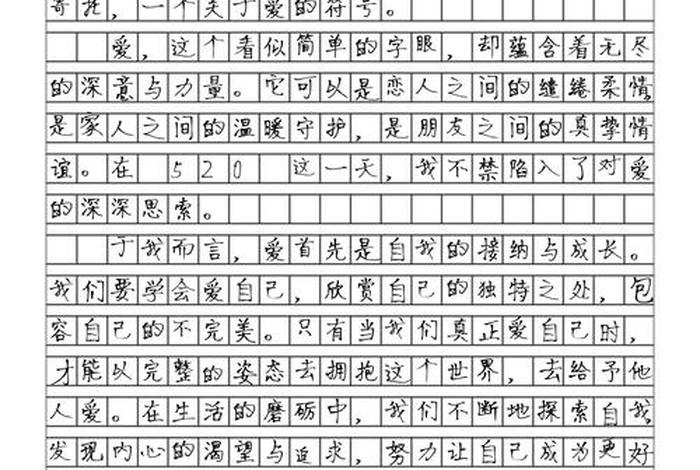 寄托，一个关于爱的符号。
爱，这个看似简单的字眼，却蕴含着无尽
的深意与力量。它可以是恋人之间的缱绻柔情，
是家人之间的温暖守护，是朋友之间的真挚情
谊。在 520 这一天，我不禁陷入了对爱
的深深思索。
于我而言，爱首先是自我的接纳与成长。
我们要学会爱自己，欣赏自己的独特之处，包
容自己的不完美。只有当我们真正爱自己时，
才能以完整的姿态去拥抱这个世界，去给予他
人爱。在生活的磨砺中，我们不断地探索自我，
发现内心的渴望与追求，努力让自己成为更好